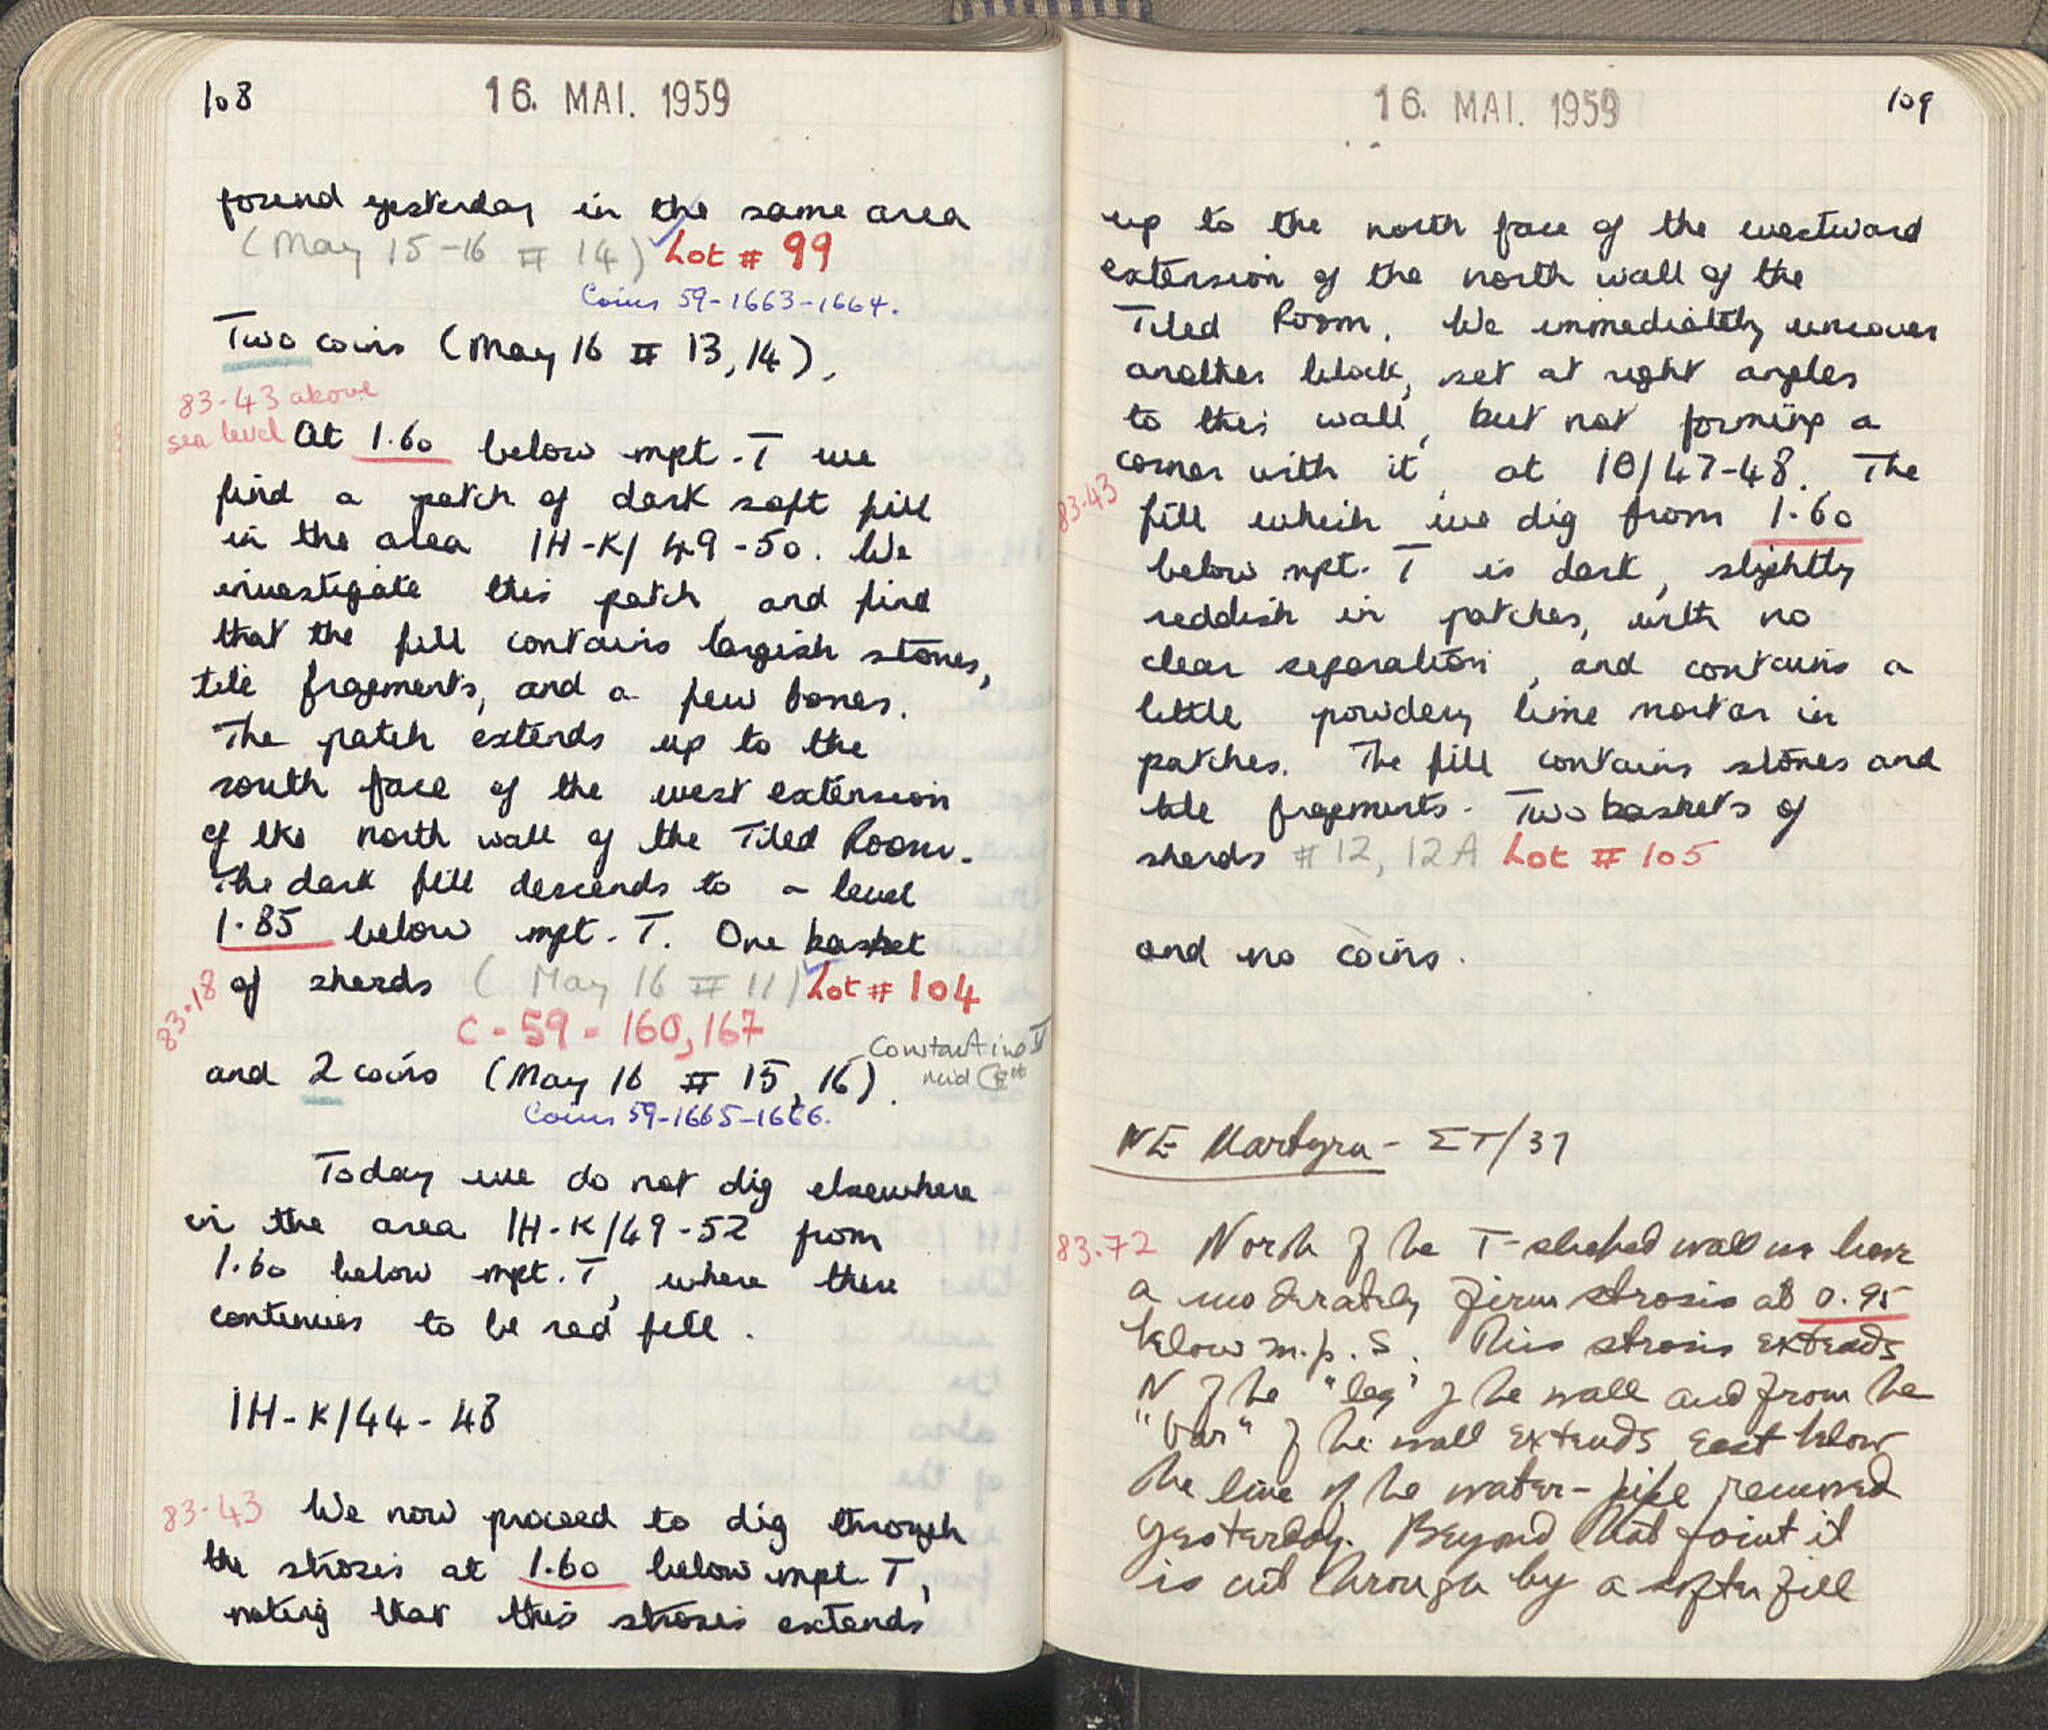 108
16. MAI. 1959
found yesterday in the same area
(May 15-16 # 14) Lot # 99
Coins 59-1663-1664.
Two coins (May 16 # 13, 14).
83-43 above
sea level At 1.60 below mpt. T we
find a patch of dark soft fill
in the area IH-K/49-50. We
investigate this patch, and find
that the fill contains largish stones,
tile fragements, and a few bones.
The patch extends up to the
south face of the west extension
of the north wall of the Tiled Room.
The dark fill descends to a level
1.85 below mpt. T. One basket
83.18 of sherds (May 16 # 11) Lot # 104
C-59-160, 167
Constantine V
mid
and 2 coins (May 16 # 15, 16).
Coins 59-1665-1666.
Today we do not dig elsewhere
in the area IH-K/49-52 from
1.60 below mpt. T, where there
continues to be red fill.
IH-K/44-48
83-43 We now proceed to dig through
the strosis at 1.60 below mpt. T,
noting that this strosis extends
109
16. MAI. 1959
up to the north face of the westward
extension of the north wall of the
Tiled Room. We immediately uncover
another block, set at right angles
to this wall, but not forming a
corner with it, at IΘ/47-48. The
83-43 fill which we dig from 1.60
below mpt. T is dark, slightly
reddish in patches, with no
clear separation, and contains a
little powdery lime mortar in
patches. The fill contains stones and
tile fragements. Two baskets of
sherds # 12, 12A Lot # 105
and no coins.
NE Martyra - ΣT/37
83.72 North of the T-shaped wall we have
a moderately firm strosis at 0.95
below m.p. S. This strosis extends
N of the "leg" of the wall and from the
"bar" of the wall extends east below
the line of the water-pipe removed
yesterday. Beyond that point it
is cut through by a softer fill